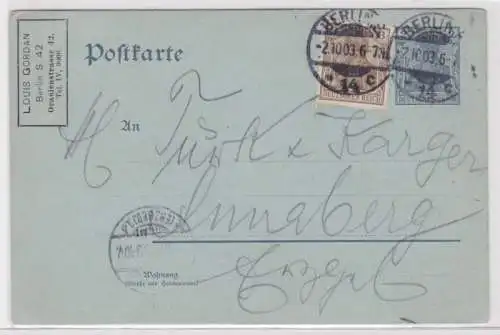 LOUIS GORDAN
Berlin S 42
Oranienstrasse 42.
Tel. IV,
Postkarte
BERLIN
-2.10.03.6-7N.
* 14 c
DEUTSCHES REICH
BERLIN
-2.10.03.6-7
14 c
An
H Türk & Karger
Annaberg
Erzgeb
Wohnung
(Straße und Hausnummer)